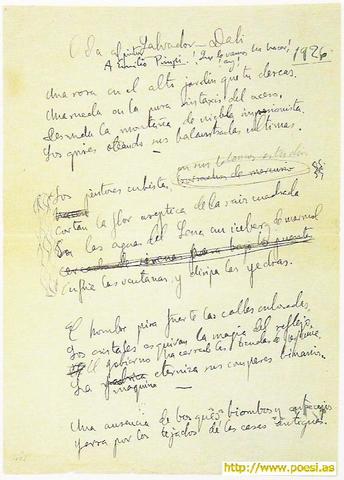 Oda al pintor Salvador Dalí
1926
Una rosa en el alto jardín que tú deseas.
Una rueda en la pura sintaxis del acero.
Desnuda la montaña de niebla impresionista.
Los grises oteando sus balaustradas últimas.
en sus blancos estudios
Los pintores cubistas
cortan la flor aséptica de la raíz cuadrada
las aguas del Sena un iceberg de mármol
enfría las ventanas, y disipa las yedras.
El hombre pisa fuerte las calles enlosadas
Los cristales esquivan la magia del reflejo.
El gobierno ha cerrado las tiendas de perfume
La máquina eterniza sus compases binarios.
Una ausencia de bosques, biombos y entrecejos
yerra por los tejados de las casas antiguas.
http://www.poesi.as